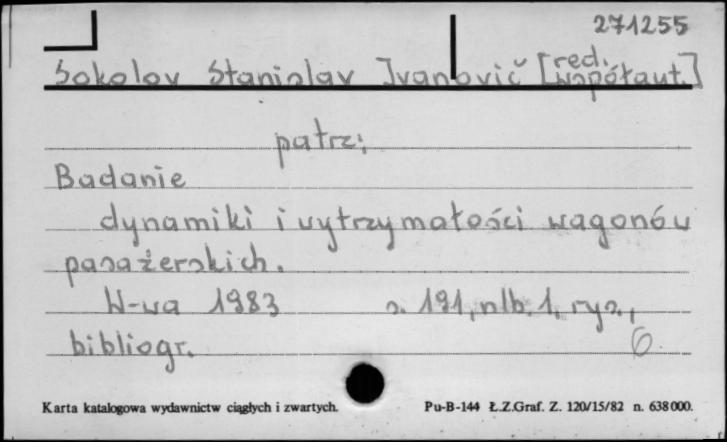 271255
Sokolov Stanislav Ivanovič [red. współaut.]
patrz:
Badanie
dynamiki i wytrzymałości wagonów
pasażerskich.
W-wa 1983 s. 191, nlb. 1, rys.,
bibliogr. 6
Karta katalogowa wydawnictw ciągłych i zwartych. Pu-B-144 Ł.Z.Graf. Z. 120/15/82 n. 638000.